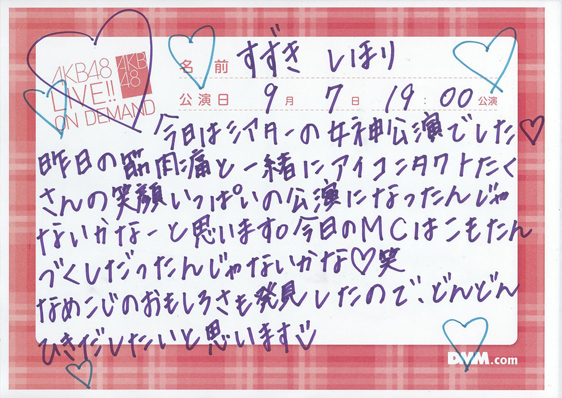 AKB48
LIVE!!
ON DEMAND
AKB
48
名前 すずき しほり
公演日 9月 7日 19:00公演
今日はシアターの女神公演でした♡
昨日の筋肉痛と一緒にアイコンタクトたく
さんの笑顔いっぱいの公演になったんじゃ
ないかなーと思います。今日のMCはこもたん
づくしだったんじゃないかな♡笑
なめこじのおもしろさも発見したので、どんどん
ひきだしたいと思います♡
DMM.com